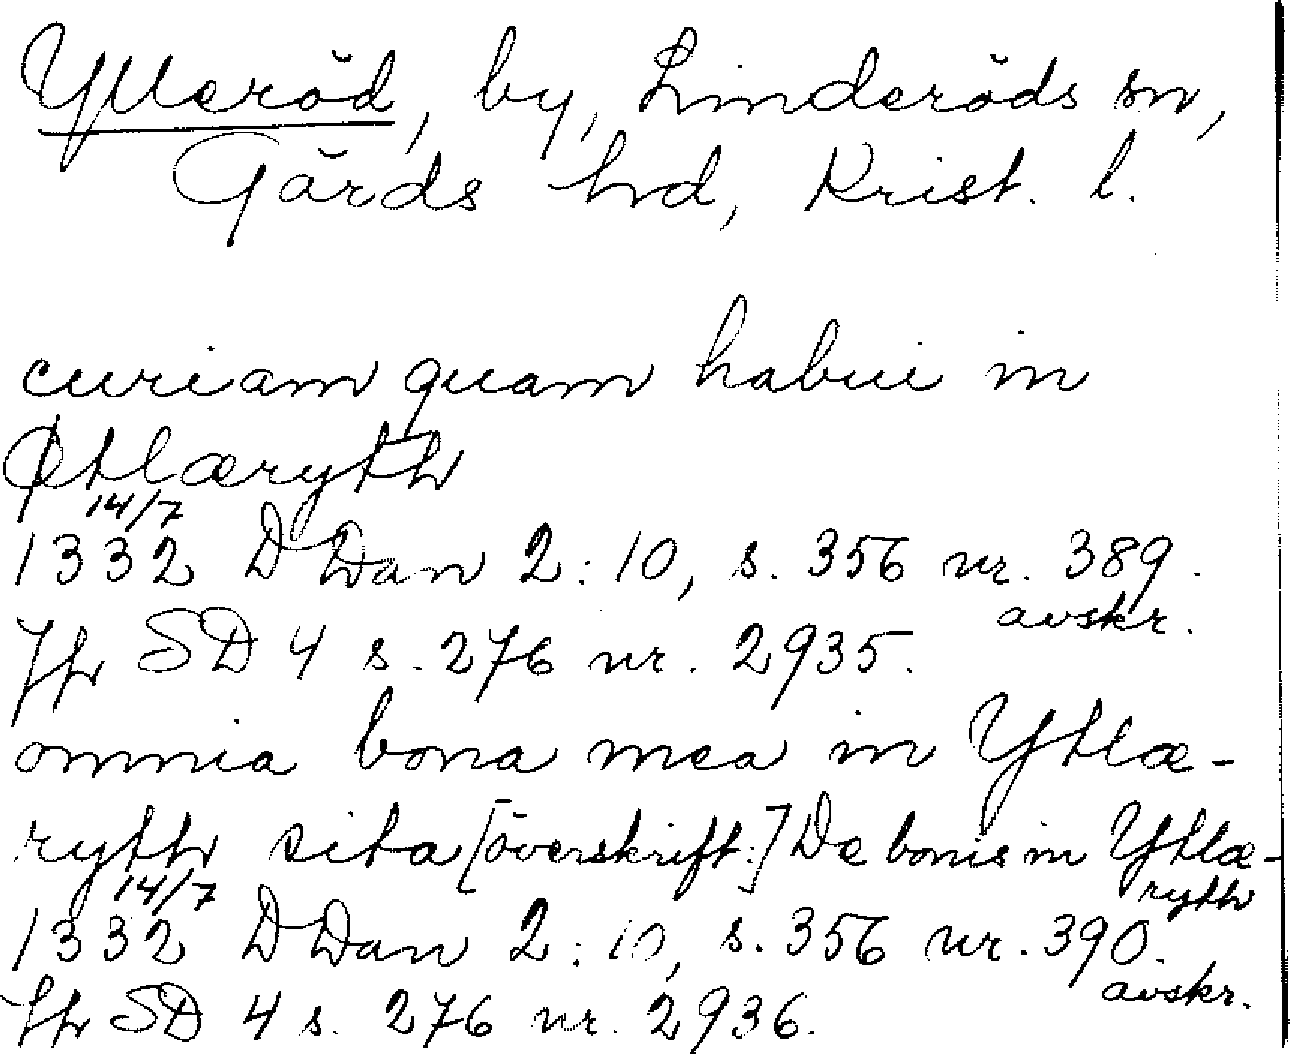 Ylleröd, by, Linderöds sn,
Gärds hd, Krist. l.
curiam quam habui in
Øtlæryth
14/7
1332 DDan 2:10, s. 356 nr. 389.
avskr.
Jfr SD 4 s. 276 nr. 2935.
omnia bona mea in Ytlæ-
ryth sita [överskrift:] De bonis in Ytlæ-
ryth
14/7
1332 DDan 2:10, s. 356 nr. 390.
avskr.
Jfr SD 4 s. 276 nr. 2936.